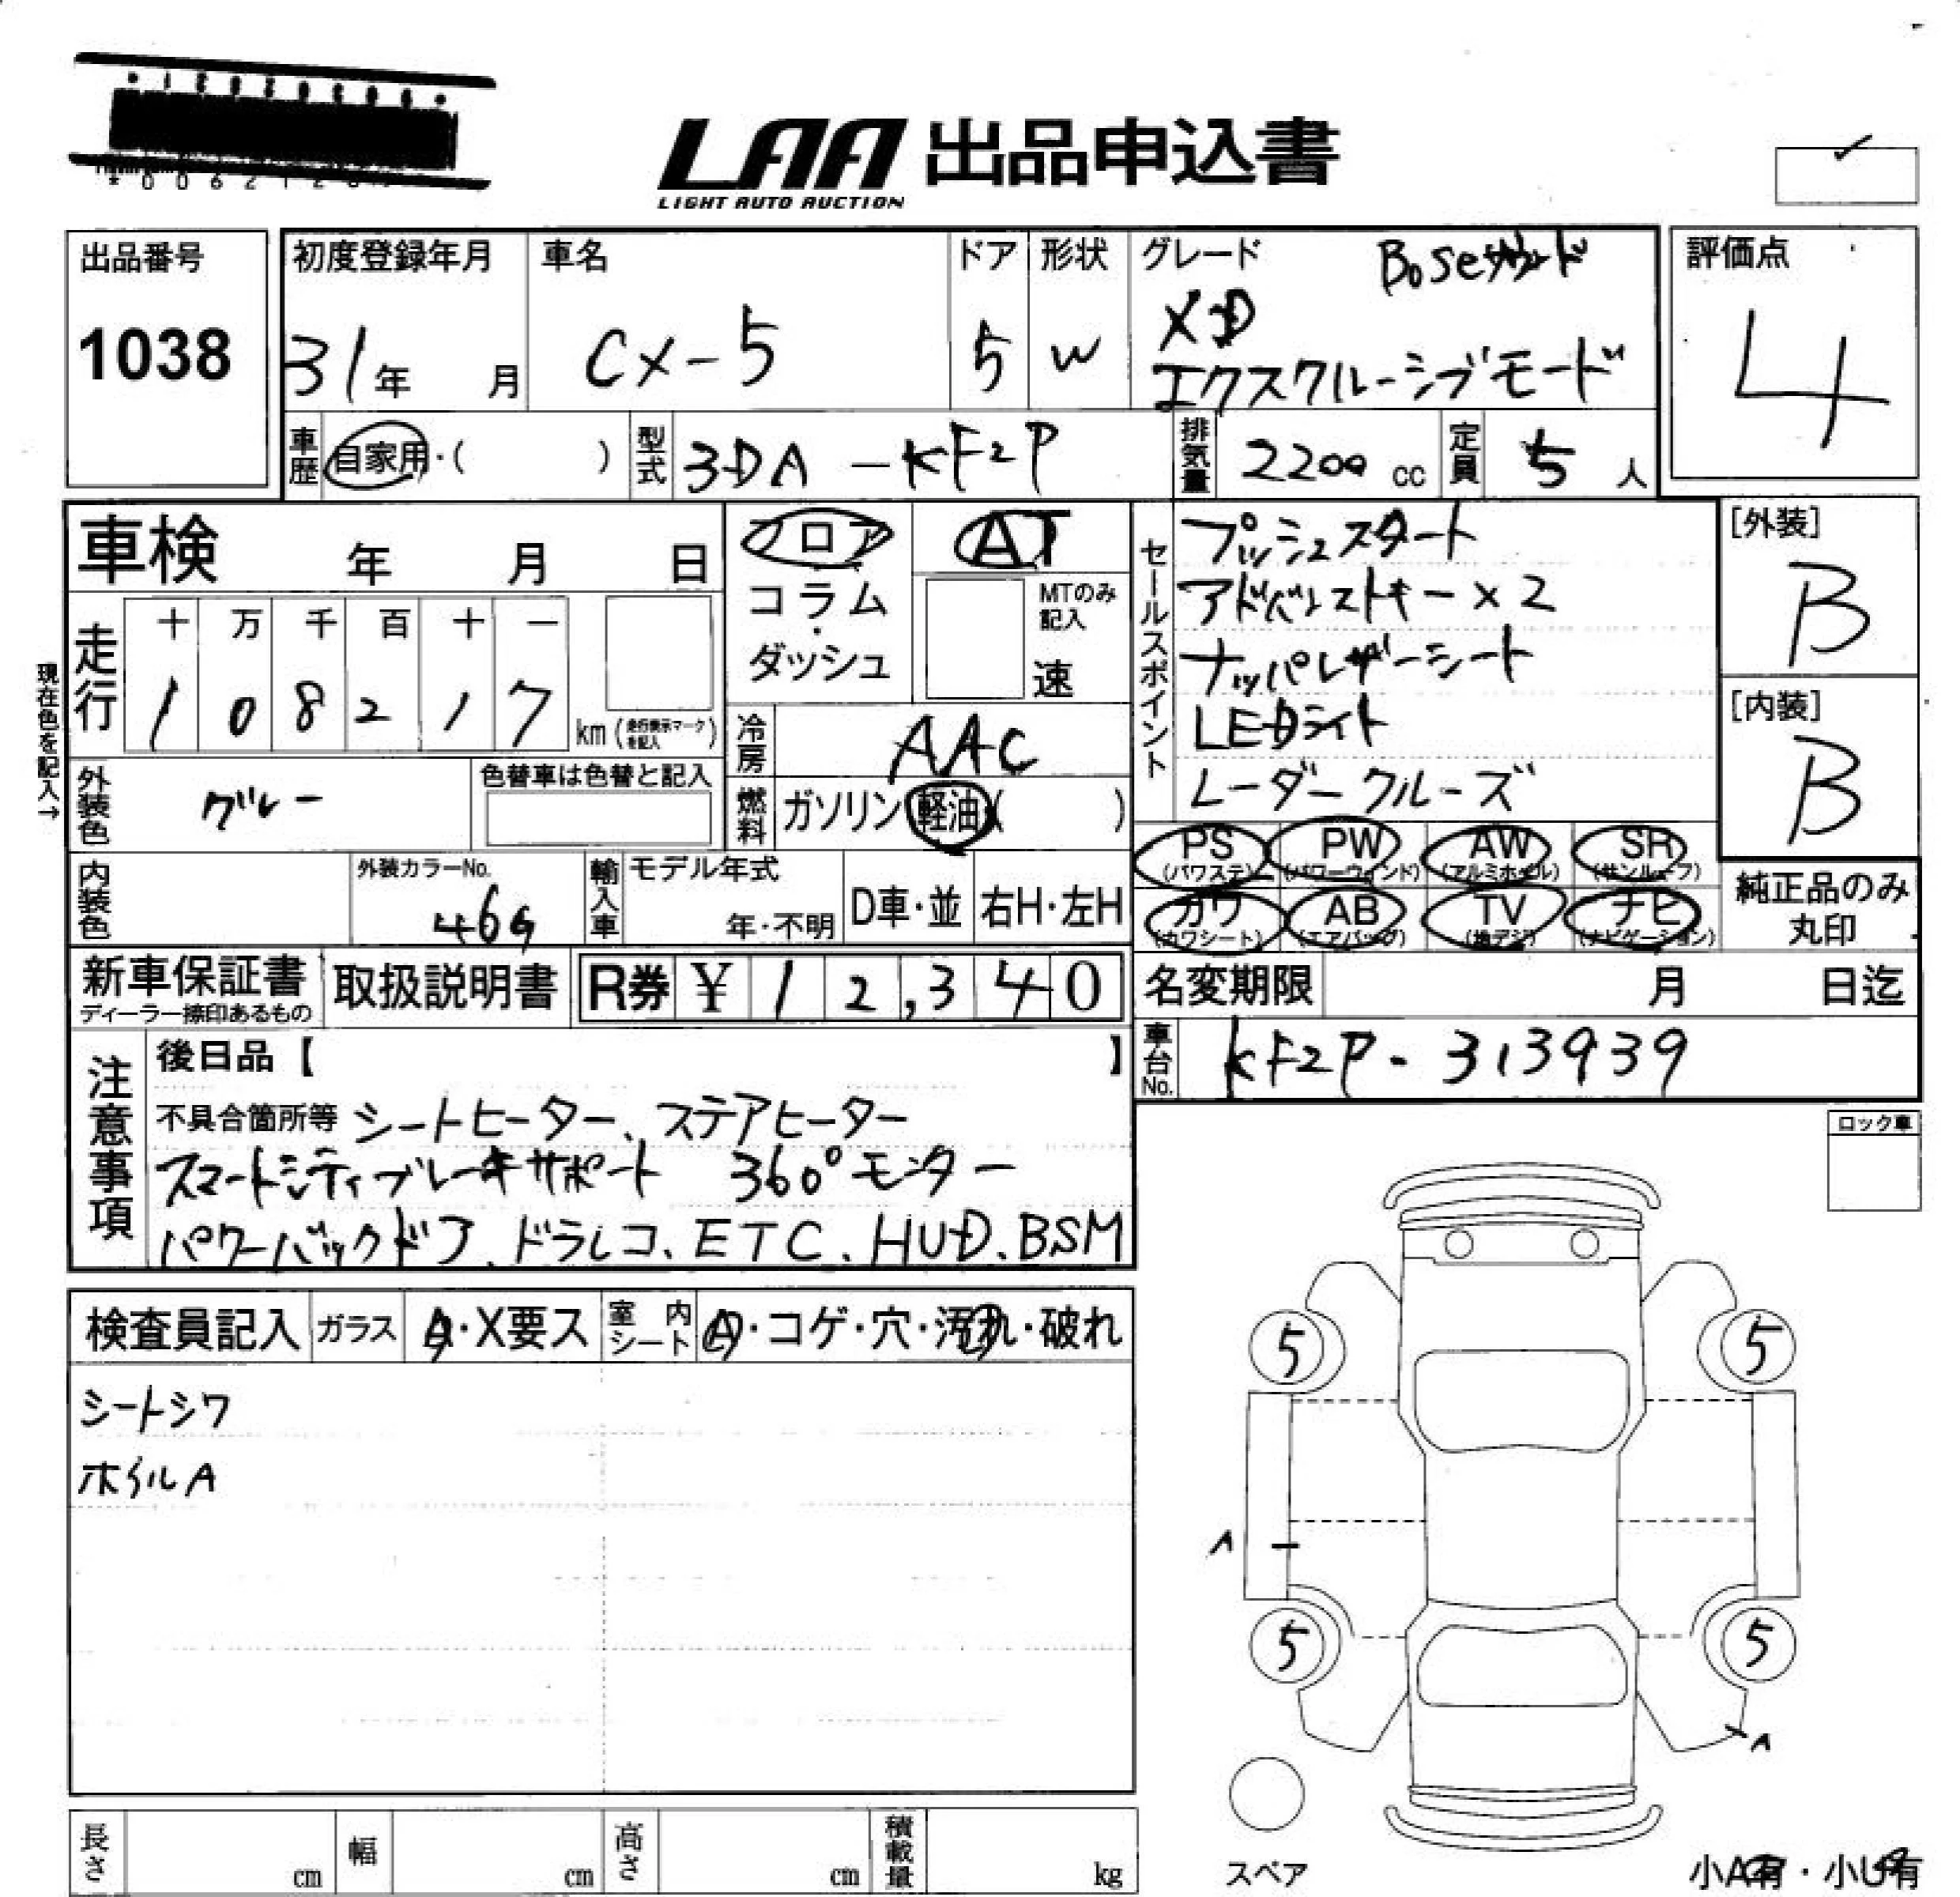 LAA 出品申込書
LIGHT AUTO AUCTION
出品番号
1038
初度登録年月
31年 月
車名
CX-5
ドア
5
形状
W
グレード
Boseサウンド
XD
エクスクルーシブモード
評価点
4
車歴
自家用・( )
型式
3DA-KF2P
排気量
2200 cc
定員
5 人
車検 年 月 日
フロア
コラム
・
ダッシュ
AT
MTのみ
記入
速
セールスポイント
プッシュスタート
アドバンストキー×2
ナッパレザーシート
LEDライト
レーダークルーズ
[外装]
B
[内装]
B
現在色を記入→
走行
十 万 千 百 十 一
1 0 8 2 1 7
km (走行表示マークを記入)
冷房
AAC
外装色
グレー
色替車は色替と記入
燃料
ガソリン 軽油・( )
PS (パワステ)
PW (パワーウィンド)
AW (アルミホイル)
SR (サンルーフ)
カワ (カワシート)
AB (エアバッグ)
TV (地デジ)
ナビ (ナビゲーション)
純正品のみ
丸印
内装色
外装カラーNo.
46G
輸入車
モデル年式
年・不明
D車・並
右H・左H
新車保証書
ディーラー捺印あるもの
取扱説明書
R券 ¥ 12,340
名変期限 月 日迄
車台No.
KF2P-313939
注意事項
後日品【 】
不具合箇所等 シートヒーター、ステアヒーター
スマートシティブレーキサポート 360°モニター
パワーバックドア、ドラレコ、ETC、HUD、BSM
ロック車
検査員記入
ガラス
A・X要ス
室内シート
A・コゲ・穴・汚れ・破れ
シートシワ
ホイルA
5
5
A
5
5
A
スペア
長さ
cm
幅
cm
高さ
cm
積載量
kg
小A有・小U有